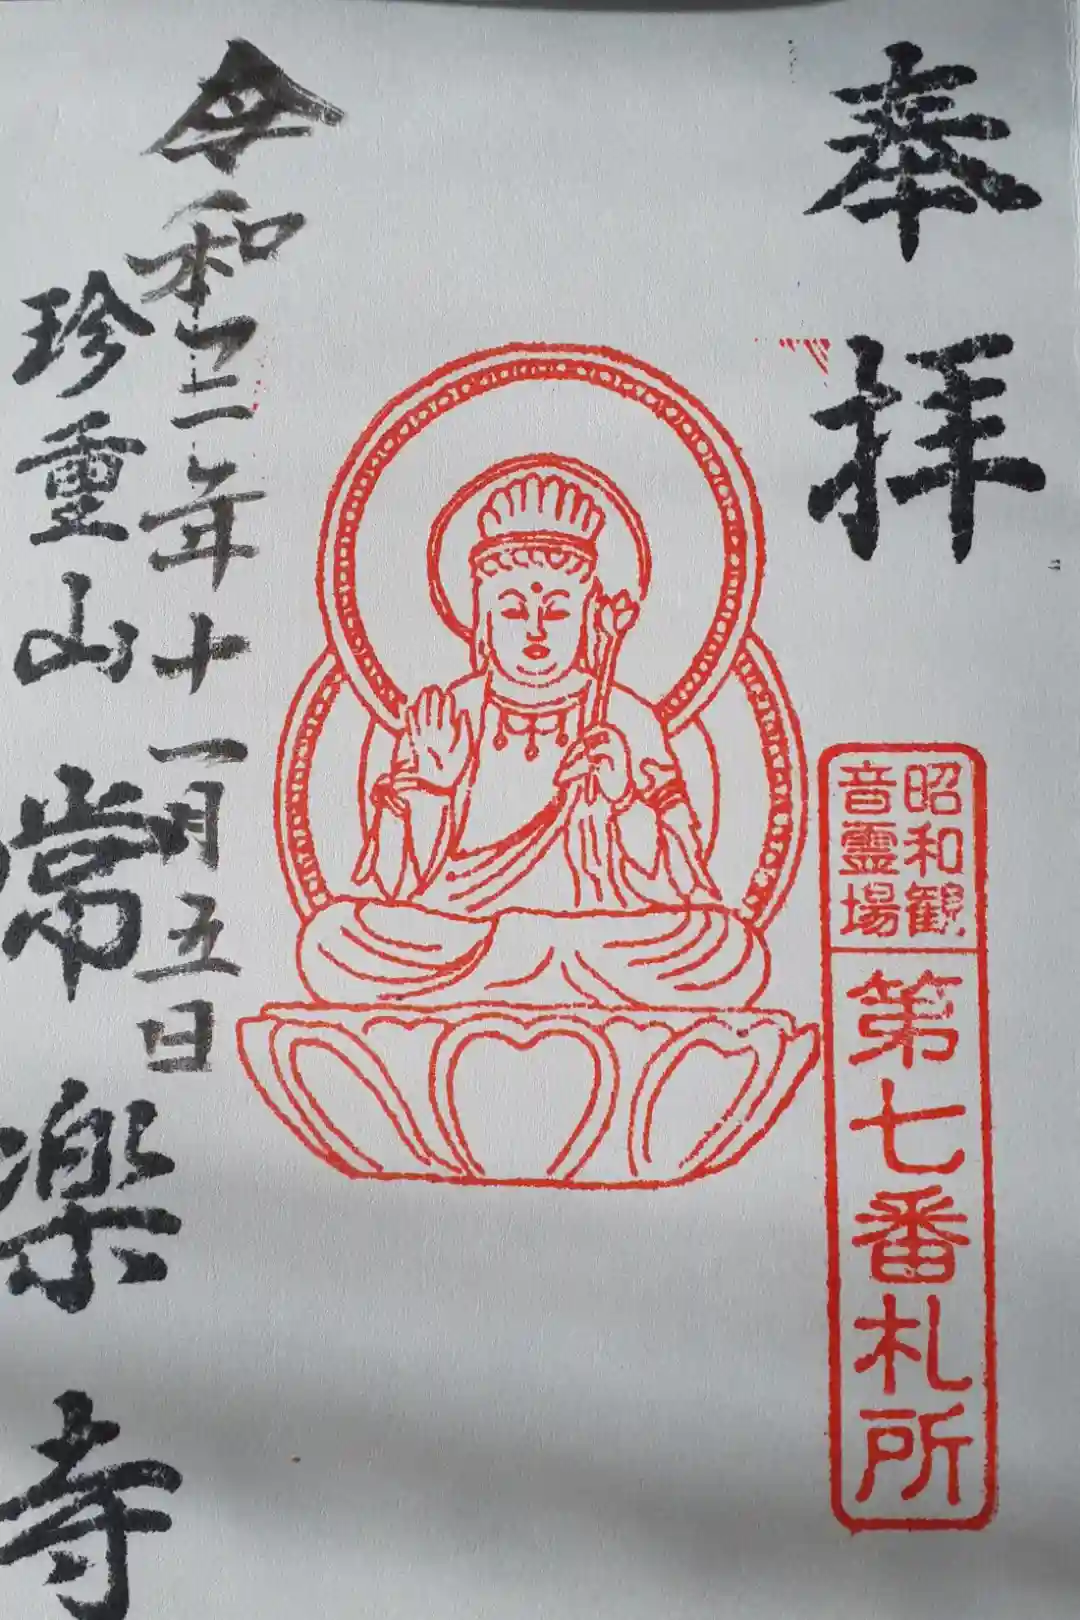 奉拝
昭和観
音霊場
第七番札所
令和三年十一月五日
珍重山
常楽寺